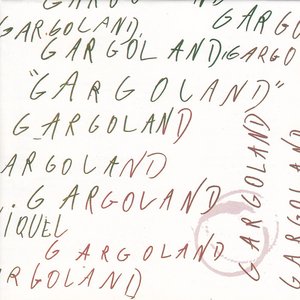 GARGOLAND
GARGOLAND,
GARGOLAND,
GARGO
"GARGOLAND"
G_ARGOLAND
ARGOLAND
. GARGOLAND
IQUEL
GARGOLAND
ARGOLAND
GARGOLAND
GARGOLAND